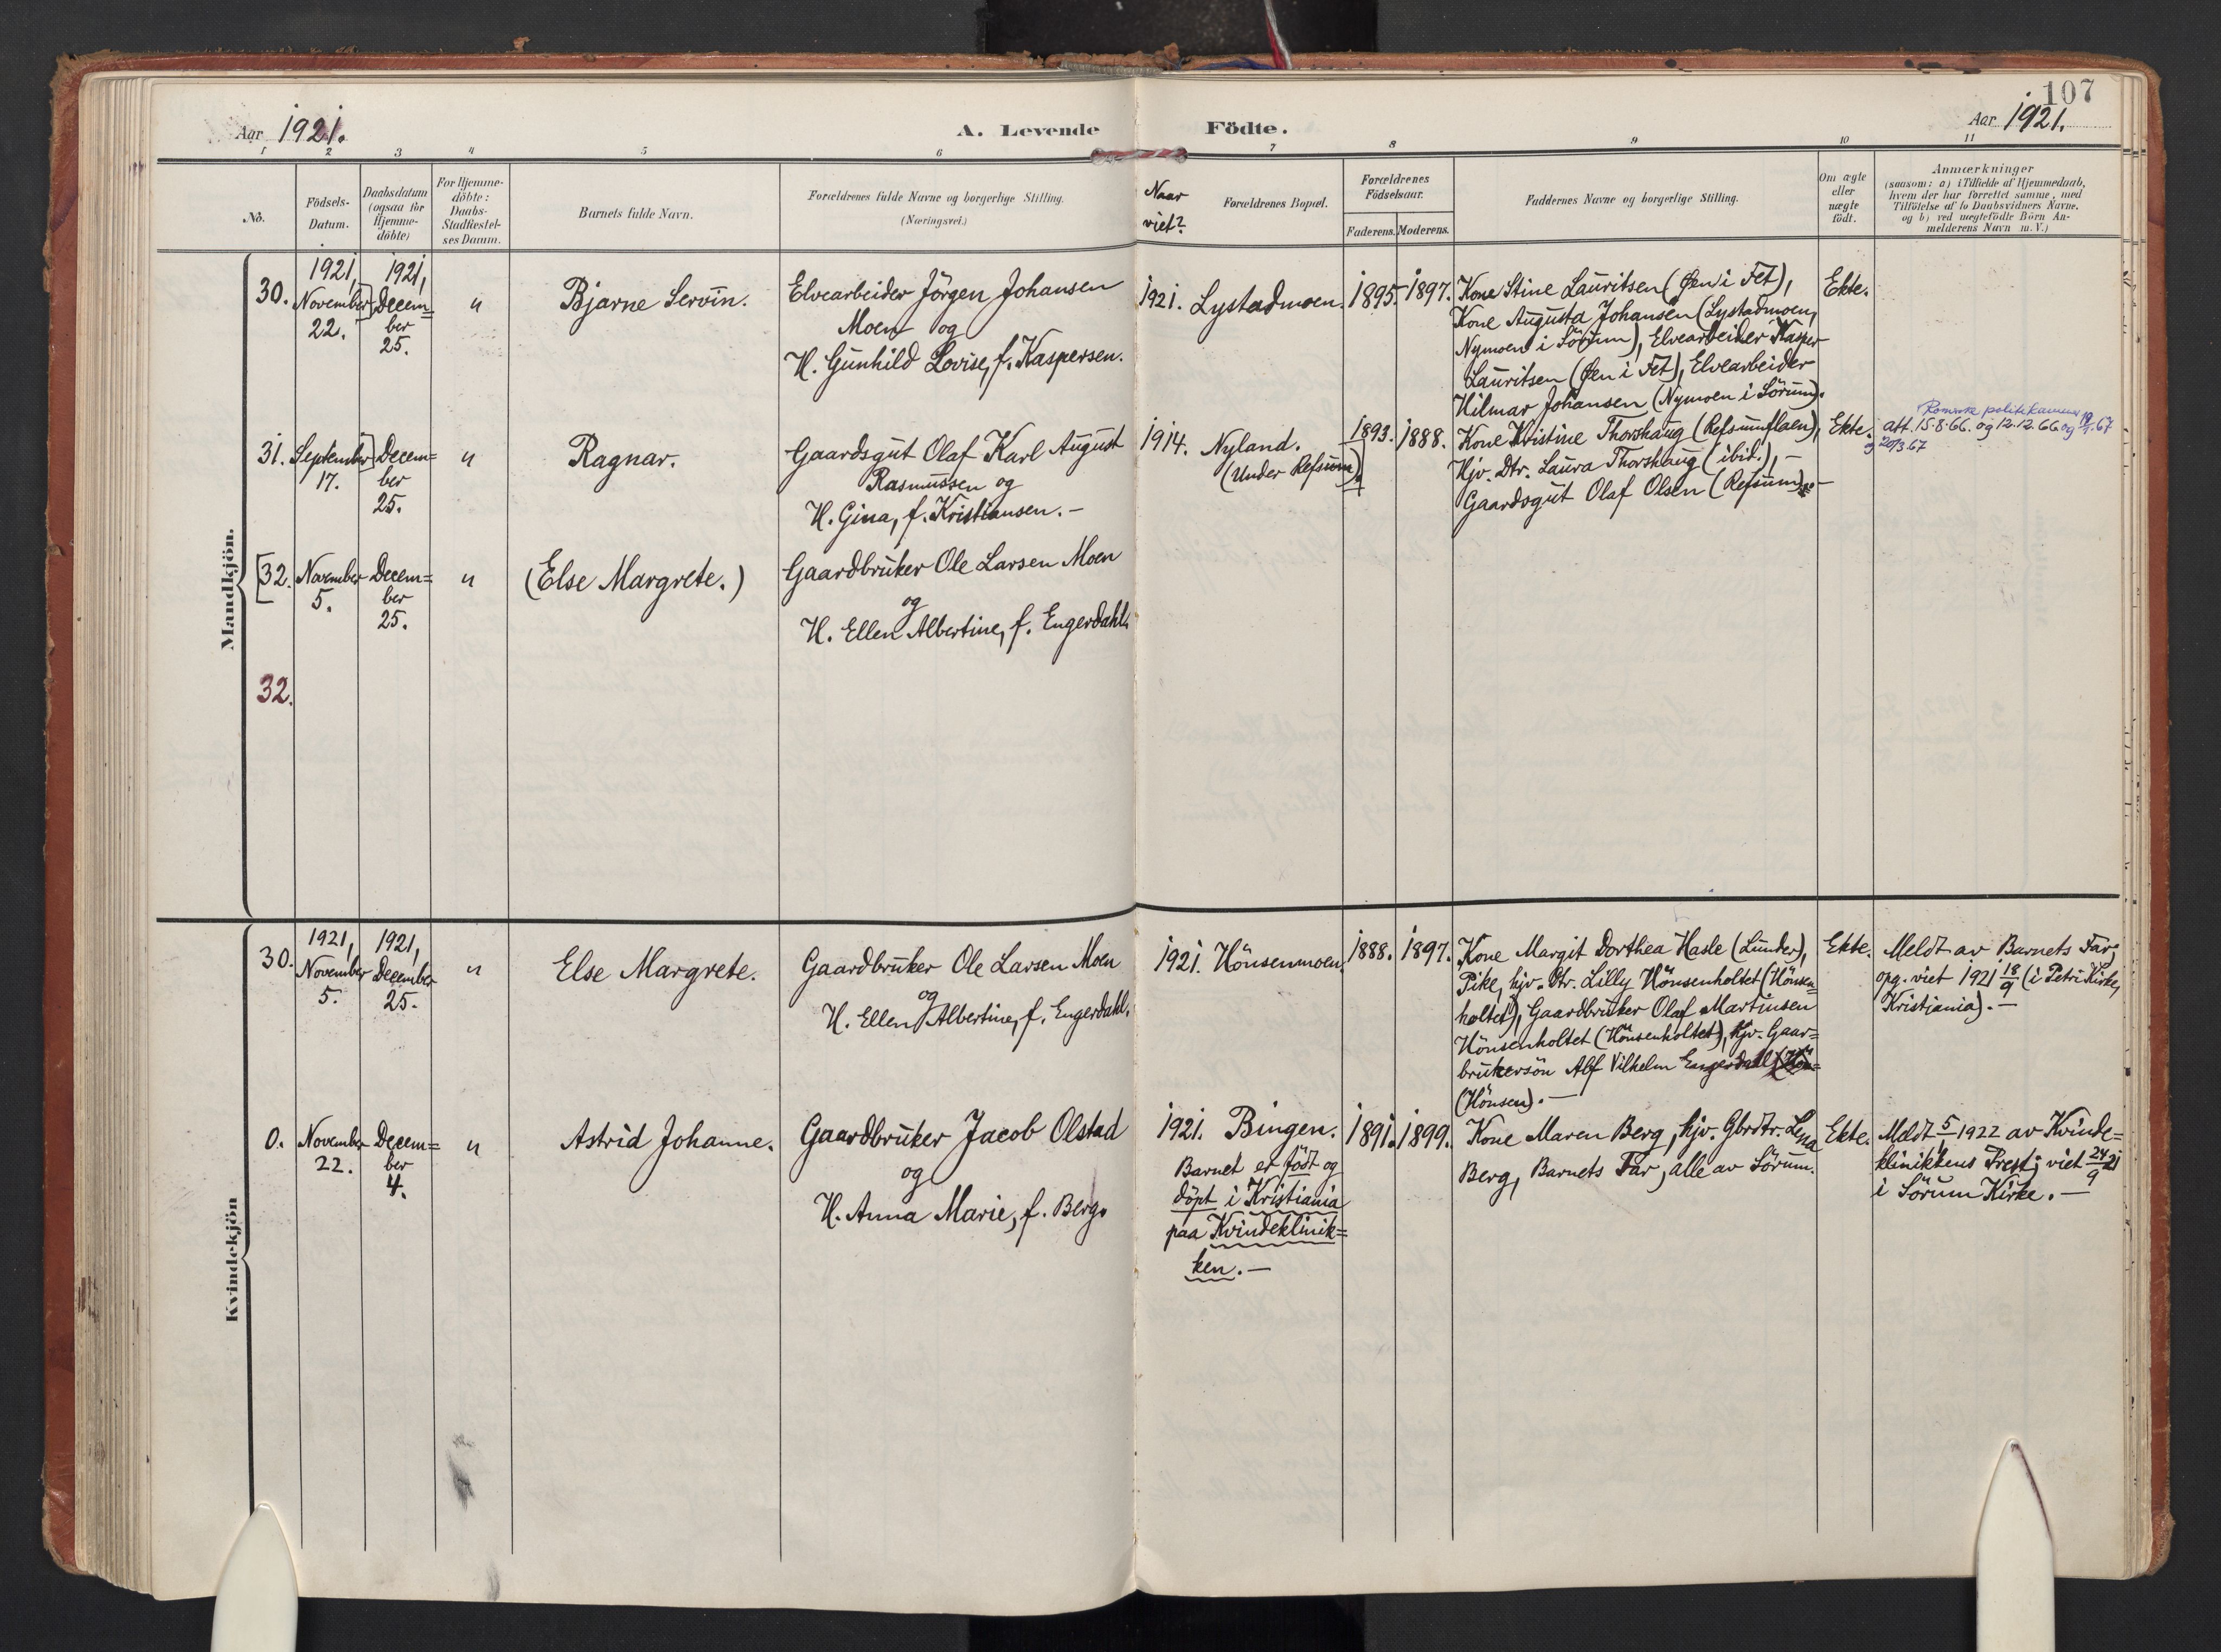 107
Aar 1921.
A. Levende Födte.
Aar 1921.
1 2 3 4 5 6 7 8 9 10 11
No.
Födsels-
Datum.
Daabsdatum
(ogsaa for
Hjemme-
döbte)
For Hjemme-
döbte:
Daabs-
Stadfæstel-
ses Datum.
Barnets fulde Navn.
Forældrenes fulde Navne og borgerlige Stilling.
(Næringsvei.)
Naar
viet?
Forældrenes Bopæl.
Forældrenes
Födselsaar.
Faderens. Moderens.
Faddernes Navne og borgerlige Stilling.
Om ægte
eller
uægte
födt.
Anmærkninger
(saasom: a) i Tilfælde af Hjemmedaab,
hvem der har forrettet samme, med
Tilföielse af to Daabsvidners Navne,
og b) ved uægtefödte Börn An-
melderens Navn m. V.)
Mandkjön.
30.
1921,
November
22.
1921,
Decem=
ber
25.
"
Bjarne Servin.
Elvearbeider Jörgen Johansen
Moen og
H. Gunhild Lovise, f. Kaspersen.
1921.
Lystadmoen.
1895.
1897.
Kone Stine Lauritsen (Øen i Fet),
Kone Augusta Johansen (Lystadmoen,
Nymoen i Sörum), Elvearbeider Kasper
Lauritsen (Øen i Fet), Elvearbeider
Hilmar Johansen (Nymoen i Sörum).
Ekte.
31.
September
17.
Decem=
ber
25.
"
Ragnar.
Gaardsgut Olaf Karl August
Rasmussen og
H. Gina, f. Kristiansen. —
1914.
Nyland.
(Under Refsum)
1893.
1888.
Kone Kristine Thorshaug (Refsumflaen),
Hjv. Dtr. Laura Thorshaug (ibid.), —
Gaardsgut Olaf Olsen (Refsum). —
Ekte.
Romerike politikammer
att. 15.8.66. og 12.12.66 og
20/3.67
[32.
November
5.
Decem=
ber
25.
"
(Else Margrete.)
Gaardbruker Ole Larsen Moen
og
H. Ellen Albertine, f. Engerdahl.
32.
Kvindekjön
30.
1921,
November
5.
1921,
December
25.
"
Else Margrete.
Gaardbruker Ole Larsen Moen
og
H. Ellen Albertine, f. Engerdahl.
1921.
Hönsenmoen.
1888.
1897.
Kone Margit Dorthea Hasle (Lunder),
Pike, hjv. Dtr. Lilly Hönsenholtet (Hönsen=
holtet), Gaardbruker Olaf Martinsen
Hönsenholtet (Hönsenholtet), hjv. Gaar=
brukersön Alf Vilhelm Engerdahl (Hön=
(Hönsen). —
Ekte.
Meldt av Barnets Far;
opg. viet 1921 18/9 (i Petri Kirke,
Kristiania). —
0.
November
22.
Decem=
ber
4.
"
Astrid Johanne.
Gaardbruker Jacob Olstad
og
H. Anna Marie, f. Berg.
1921.
Bingen.
Barnet er född og
döpt i Kristiania
paa Kvindeklinik=
ken. —
1891.
1899.
Kone Maren Berg, hjv. Gbrdtr. Lena
Berg, Barnets Far, alle av Sörum.
Ekte.
Meldt 5/1 1922 av Kvinde=
klinikkens Prest; viet 24/9 21
i Sörum Kirke. —